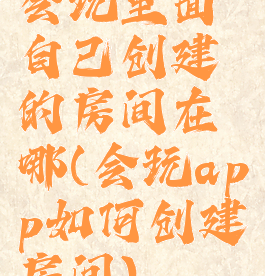 会玩里面
自己创建
的房间在
哪(会玩ap
p如何创建
房间)